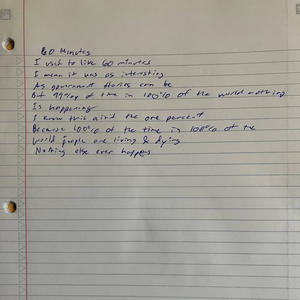 60 Minutes
I used to like 60 minutes
I mean it was as interesting
As government stories can be
But 99% of time in 100% of the world nothing
Is happening
I know this aint the one percent
Because 100% of the time in 100% of the
World people are living & dying
Nothing else ever happens